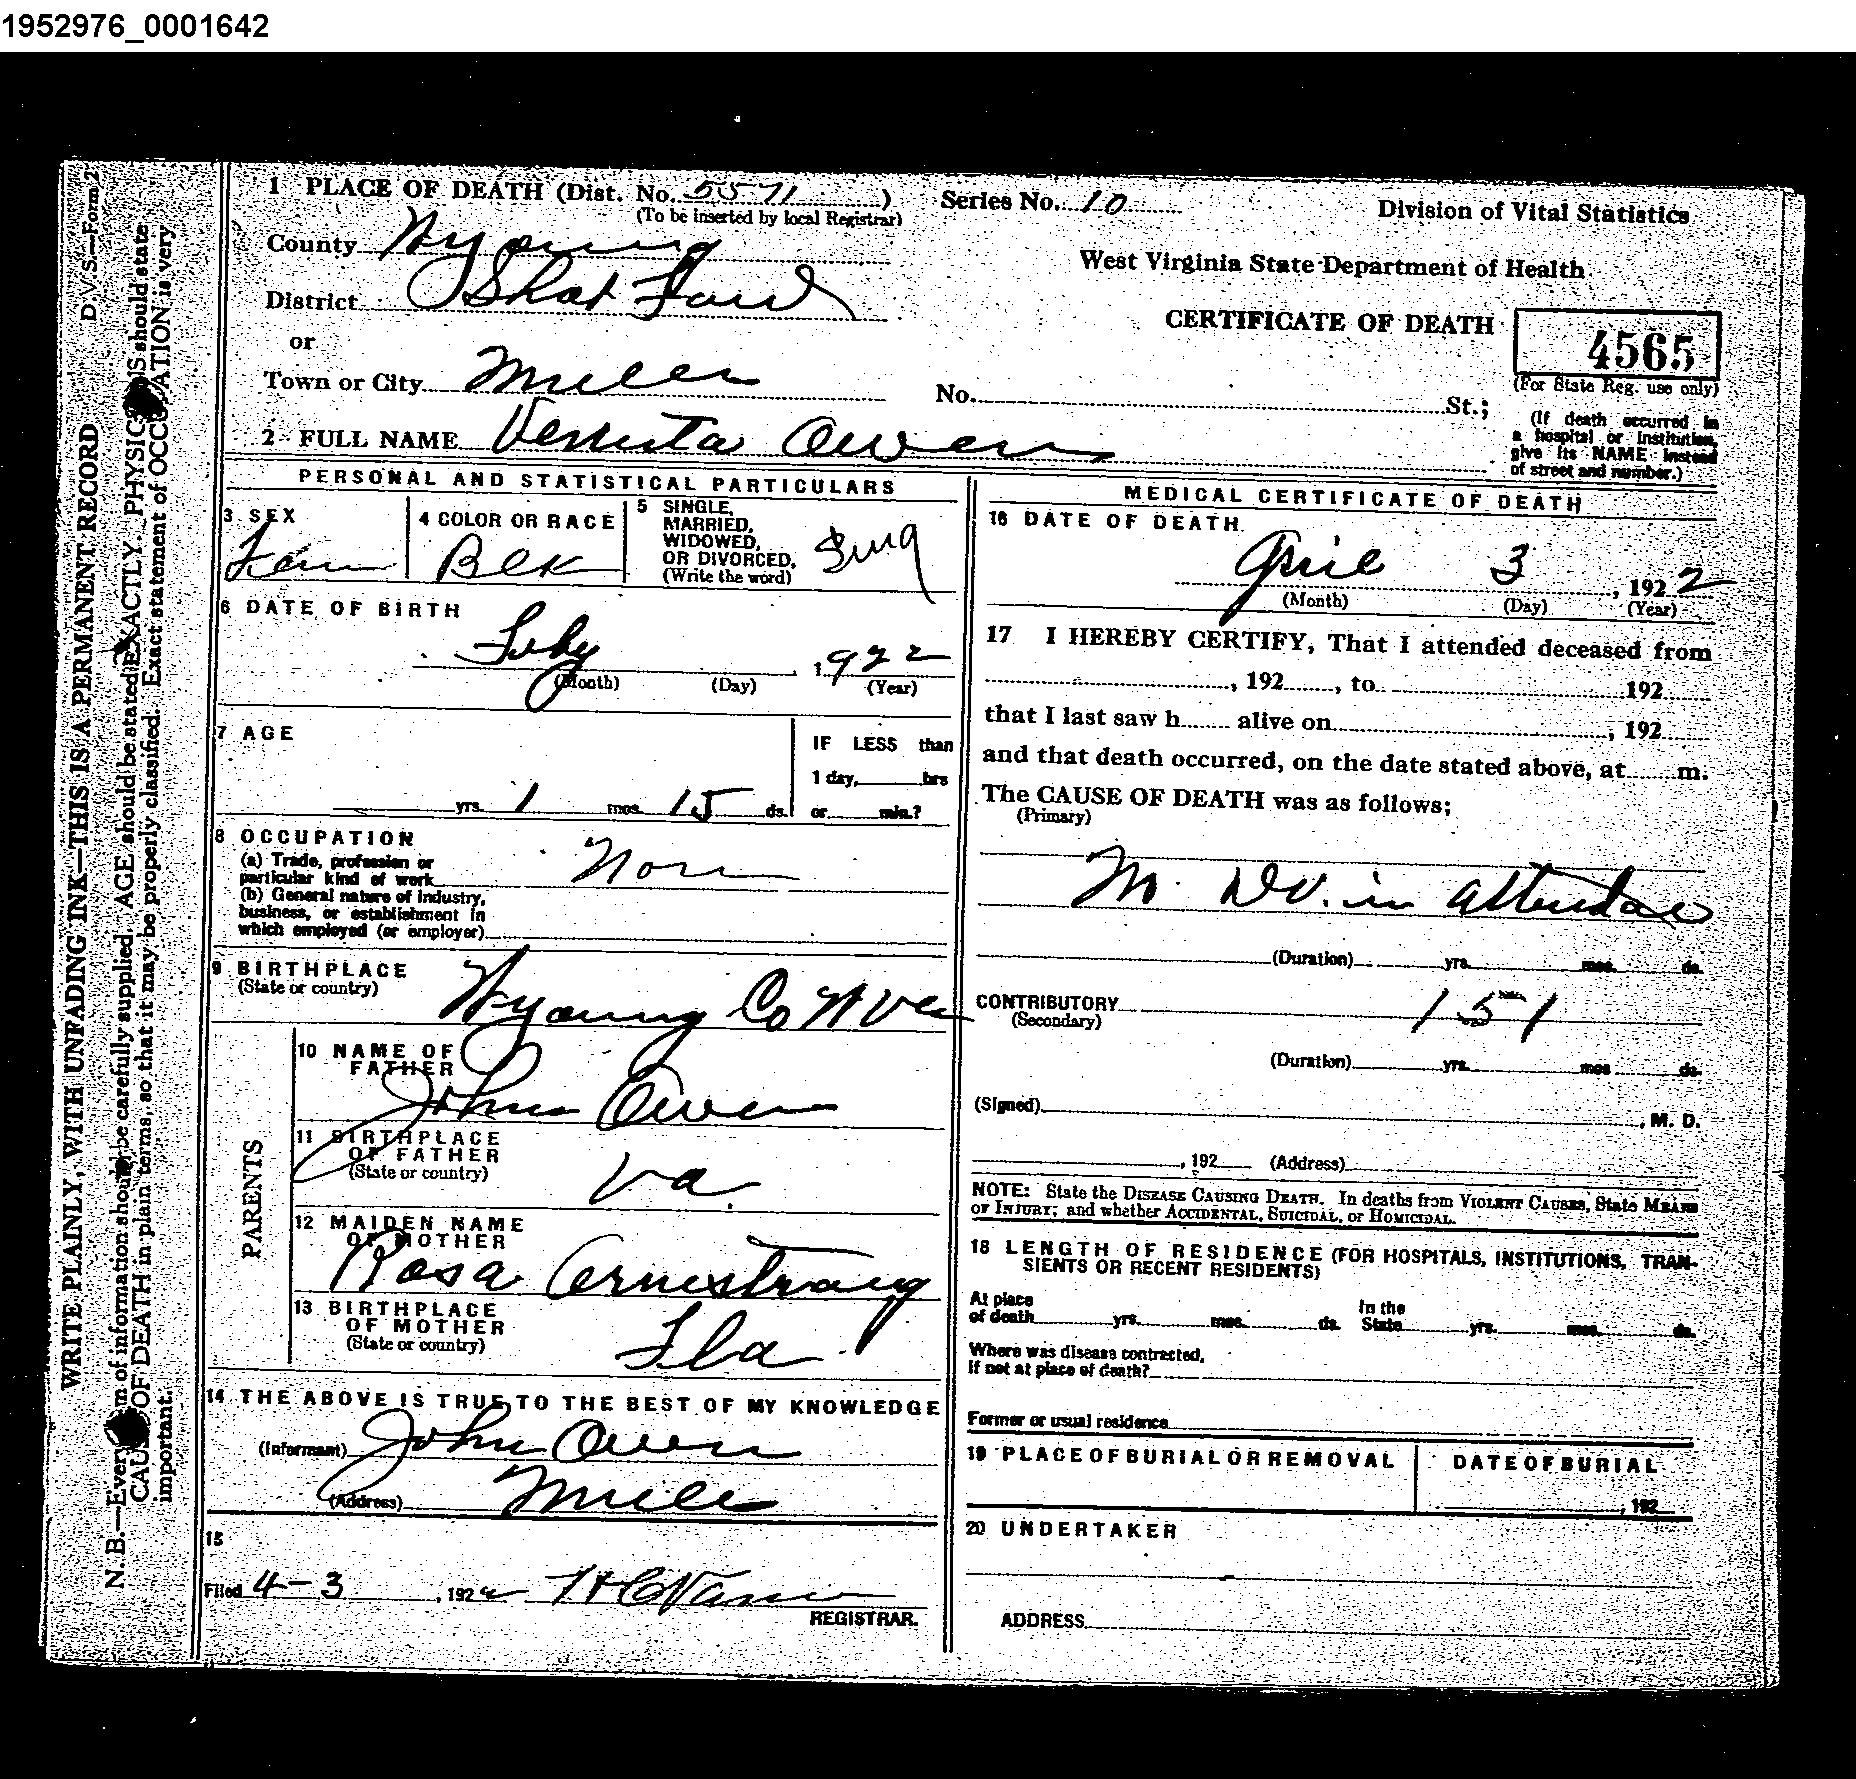 1952976_0001642
1 PLACE OF DEATH (Dist. No. 5571 ) Series No. 10 Division of Vital Statistics
(To be inserted by local Registrar)
County Wyoming
West Virginia State Department of Health
District
or
CERTIFICATE OF DEATH 4565
(For State Reg. use only)
Town or City
No. St.;
(If death occurred in a hospital or institution, give its NAME instead of street and number.)
2 FULL NAME Owen
PERSONAL AND STATISTICAL PARTICULARS
3 SEX Fem
4 COLOR OR RACE Blk
5 SINGLE, MARRIED, WIDOWED, OR DIVORCED, (Write the word) Sing
6 DATE OF BIRTH
Feby 1922
(Month) (Day) (Year)
7 AGE
IF LESS than
1 day, hrs
yrs. 1 mos. 15 ds. or min.?
8 OCCUPATION
(a) Trade, profession or
particular kind of work
(b) General nature of industry,
business, or establishment in
which employed (or employer)
9 BIRTHPLACE
(State or country) Wyoming Co W Va
PARENTS
10 NAME OF
FATHER
John Owen
11 BIRTHPLACE
OF FATHER
(State or country) Va.
12 MAIDEN NAME
OF MOTHER
Rosa Armstrong
13 BIRTHPLACE
OF MOTHER
(State or country) Fla
14 THE ABOVE IS TRUE TO THE BEST OF MY KNOWLEDGE
(Informant) John Owen
(Address)
15
Filed 4-3, 192
REGISTRAR.
MEDICAL CERTIFICATE OF DEATH
16 DATE OF DEATH
April 3, 1922
(Month) (Day) (Year)
17 I HEREBY CERTIFY, That I attended deceased from
, 192 , to 192
that I last saw h alive on , 192
and that death occurred, on the date stated above, at m.
The CAUSE OF DEATH was as follows;
(Primary)
in
(Duration) yrs. mos. ds.
CONTRIBUTORY 151
(Secondary)
(Duration) yrs. mos ds.
(Signed) , M. D.
, 192 (Address)
NOTE: State the DISEASE CAUSING DEATH. In deaths from VIOLENT CAUSES, State MEANS
OF INJURY; and whether ACCIDENTAL, SUICIDAL, or HOMICIDAL.
18 LENGTH OF RESIDENCE (FOR HOSPITALS, INSTITUTIONS, TRAN-
SIENTS OR RECENT RESIDENTS)
At place
of death yrs. mos. ds. In the State yrs. mos. ds.
Where was disease contracted,
If not at place of death?
Former or usual residence
19 PLACE OF BURIAL OR REMOVAL DATE OF BURIAL
, 192
20 UNDERTAKER
ADDRESS
D V S.—Form 2
WRITE PLAINLY, WITH UNFADING INK—THIS IS A PERMANENT RECORD
N. B.—Every of information should be carefully supplied. AGE should be stated EXACTLY. should state
CAUSE OF DEATH in plain terms, so that it may be properly classified. Exact statement of OCCUPATION is very
important.